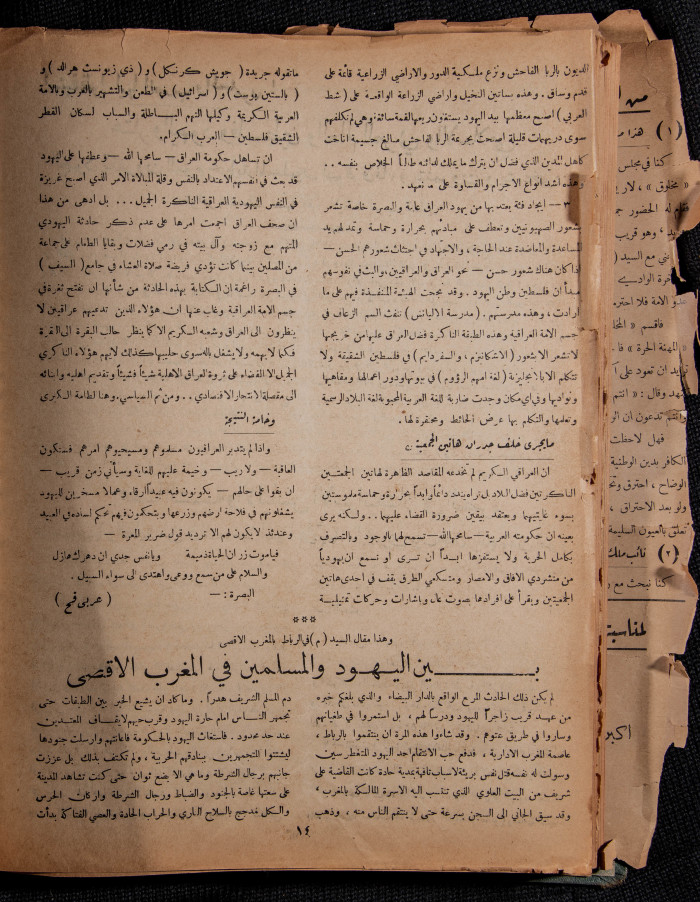 الديون بالربا الفاحش ونزع ملكية الدور والاراضي الزراعية قائمة على
قدم وساق . وهذه بساتين النخيل واراضي الزراعة الواقعة على ( شط
العربي ) اصبح معظمها بيد اليهود يستغلون ريعها لقمة سائغة وهي لم تكلفهم
سوى دريهمات قليلة اصبحت بجريمة الربا الفاحش مبالغ جسيمة اناخت
كاهل المدين الذي فضل ان يترك ما يملك لدائنه طالباً الخلاص بنفسه . .
وهذه اشد انواع الاجرام والقساوة على ما نعهد .
٣ — ايجاد فئة يعتد بها من يهود العراق عامة والبصرة خاصة تشعر
بشعور الصهيونيين وتعطف على مبادئهم بحرارة وحماسة وتمد لهم يد
المساعدة والمعاضدة عند الحاجة ، والاجتهاد في اجتثاث شعورهم الحسن —
اذا كان هناك شعور حسن — نحو العراق والعراقيين ، والبث في نفوسهم
مبدأ ان فلسطين وطن اليهود . وقد نجحت الهيئة المنفذة فيهم على ما
ارادت ، وهذه مدرستهم . ( مدرسة الاليانس ) تنفث السم الزعاف في
جسم الامة العراقية وهذه الطبقة الناكرة فضل العراق عليها من خريجيها
لا تشعر الا بشعور ( الاشكنازيم ، والسفرديم ) في فلسطين الشقيقة ولا
تتكلم الا بالانجليزية ( لغة امهم الرؤوم ) في بيوتها ودور اعمالها ومقاهيها
ونواديها وفي اي مكان وجدت ضاربة للغة العربية المحبوبة لغة البلاد الرسمية
وتعلمها والتكلم بها عرض الحائط ومحتقرة لها .
ما يجري خلف جدران هاتين الجمعيتين
ان العراقي الكريم لم تخدعه المقاصد الظاهرة لهاتين الجمعيتين
الناكرتين فضل البلاد بل تراه يندد دائماً وابداً بحرارة وحماسة ملموستين
بسوء غايتيهما ويعتقد بيقين ضرورة القضاء عليهما . . ولكنه يرى
بعينه ان حكومته العربية — سامحها الله — تسمح لهما بالوجود وبالتصرف
بكامل الحرية ولا يستفزها ابداً ان ترى او تسمع ان يهودياً
من متشردي الافاق والامصار ومتسكعي الطرق يقف في احدى هاتين
الجمعيتين ويقرأ على افرادها بصوت عال وباشارات وحركات تمثيلية
ما تقوله جريدة ( جويش كرنكل ) و ( ذي زيونست هرالد ) و
( بالستين بوست ) و ( اسرائيل ) في الطعن والتشهير بالعرب وبالامة
العربية الكريمة وكيلها التهم الباطلة والسباب لسكان القطر
الشقيق فلسطين — العرب الكرام .
ان تساهل حكومة العراق — سامحها الله — وعطفها على اليهود
قد بعث في نفوسهم الاعتداد بالنفس وقلة المبالاة الامر الذي اصبح غريزة
في النفس اليهودية العراقية الناكرة الجميل . . . بل ادهى من هذا
ان صحف العراق اجمعت امرها على عدم ذكر حادثة اليهودي
المتهم مع زوجته وآل بيته في رمي فضلات وبقايا الطعام على جماعة
من المصلين بينما كانت تؤدي فريضة صلاة العشاء في جامع ( السيف )
في البصرة زاعمة ان الكتابة بهذه الحادثة من شأنها ان تفتح ثغرة في
جسم الامة العراقية وغاب عنها ان هؤلاء الذين تدعيهم عراقيين لا
ينظرون الى العراق وشعبه الكريم الا كما ينظر حالب البقرة الى البقرة
فكما لا يهمه ولا يشغل باله سوى حليبها كذلك لا يهم هؤلاء الناكري
الجميل الا القضاء على ثروة العراق الاهلية شيئاً فشيئاً وتقديم اهليه وابنائه
الى مقصلة الانتحار الاقتصادي . . ومن ثم السياسي . وهنا الطامة الكبرى
وخامة النتيجة
واذا لم يتدبر العراقيون مسلموهم ومسيحيوهم امرهم فستكون
العاقبة — ولا ريب — وخيمة عليهم للغاية وسيأتي زمن قريب —
ان بقوا على حالهم — يكونون فيه عبيداً ارقاء وعمالا مسخرين لليهود
يشغلونهم في فلاحة ارضهم وزرعها ويتحكمون فيهم تحكم اسادة في العبيد
وعندئذ لا يكون لهم الا ترديد قول ضرير المعرة —
فيا موت زر ان الحياة ذميمة   ويا نفس جدي ان دهرك هازل
والسلام على من سمع ووعى واهتدى الى سواء السبيل .
البصرة : —   ( عربي قح )
***
وهذا مقال السيد ( م ) في الرباط بالمغرب الاقصى
بين اليهود والمسلمين في المغرب الاقصى
لم يكن ذلك الحادث المريع الواقع بالدار البيضاء والذي بلغكم خبره
من عهد قريب زاجراً لليهود ودرساً لهم ، بل استمروا في طغيانهم
وساروا في طريق عتوهم . وقد شاءوا هذه المرة ان ينتقموا بالرباط ،
عاصمة المغرب الادارية ، فدفع حب الانتقام احد اليهود المتغطرسين
وسولت له نفسه قتل نفس بريئة لاسباب تافهة بمدية حادة كانت القاضية على
شريف من البيت العلوي الذي تنتسب اليه الاسرة المالكة بالمغرب ،
وقد سيق الجاني الى السجن بسرعة حتى لا ينتقم الناس منه ، وذهب
دم المسلم الشريف هدراً . وما كاد ان يشيع الخبر بين الطبقات حتى
تجمهر الناس امام حارة اليهود وقرب حيهم لايقاف المعتدين
عند حد محدود . فاستغاث اليهود بالحكومة فاغاثتهم وارسلت جنودها
ليشتتوا المتجمهرين ببنادقهم الحربية ، ولم تكتف بذلك بل عززت
جانبهم برجال الشرطة وما هي الا بضع ثوان حتى كنت تشاهد المدينة
على سعتها غاصة بالجنود والضباط ورجال الشرطة واركان الحرس
والكل مدجج بالسلاح الناري والحراب الحادة والعصي الفتاكة بدأت
١٤
( ١ )
كنا في مجلس
« مخلوق » ، لار
( ٢ )
كنا نبحث مع